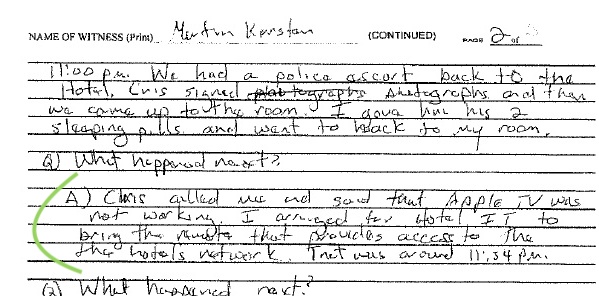 NAME OF WITNESS (Print) Martin Kirsten (CONTINUED) PAGE 2 of
11:00 p.m. We had a police escort back to the
Hotel. Cris signed photographs and then
we came up to the room. I gave him his 2
sleeping pills and went to back to my room.
Q) What happened next?
A) Chris called me and said that Apple TV was
not working. I arranged for Hotel IT to
bring the remote that provides access to the
the hotels network. That was around 11:34 p.m.
Q) What happened next?